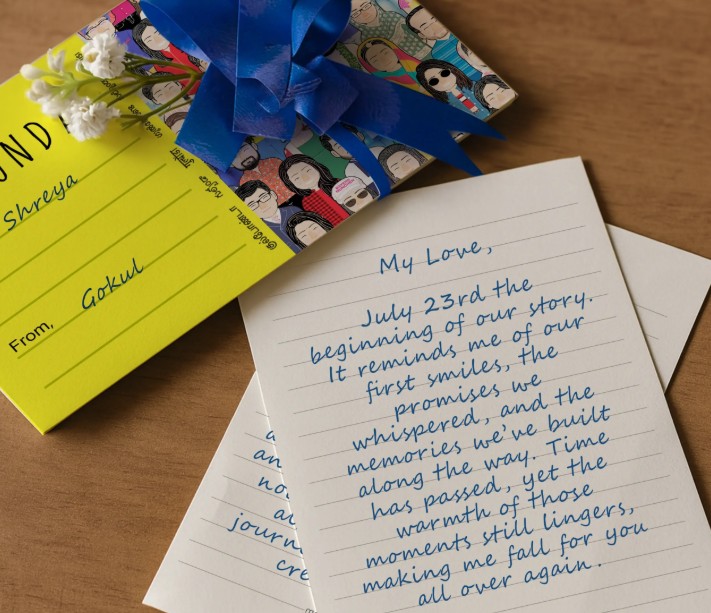 Shreya
From, Gokul
My Love,
July 23rd the
beginning of our story.
It reminds me of our
first smiles, the
promises we
whispered, and the
memories we've built
along the way. Time
has passed, yet the
warmth of those
moments still lingers,
making me fall for you
all over again.